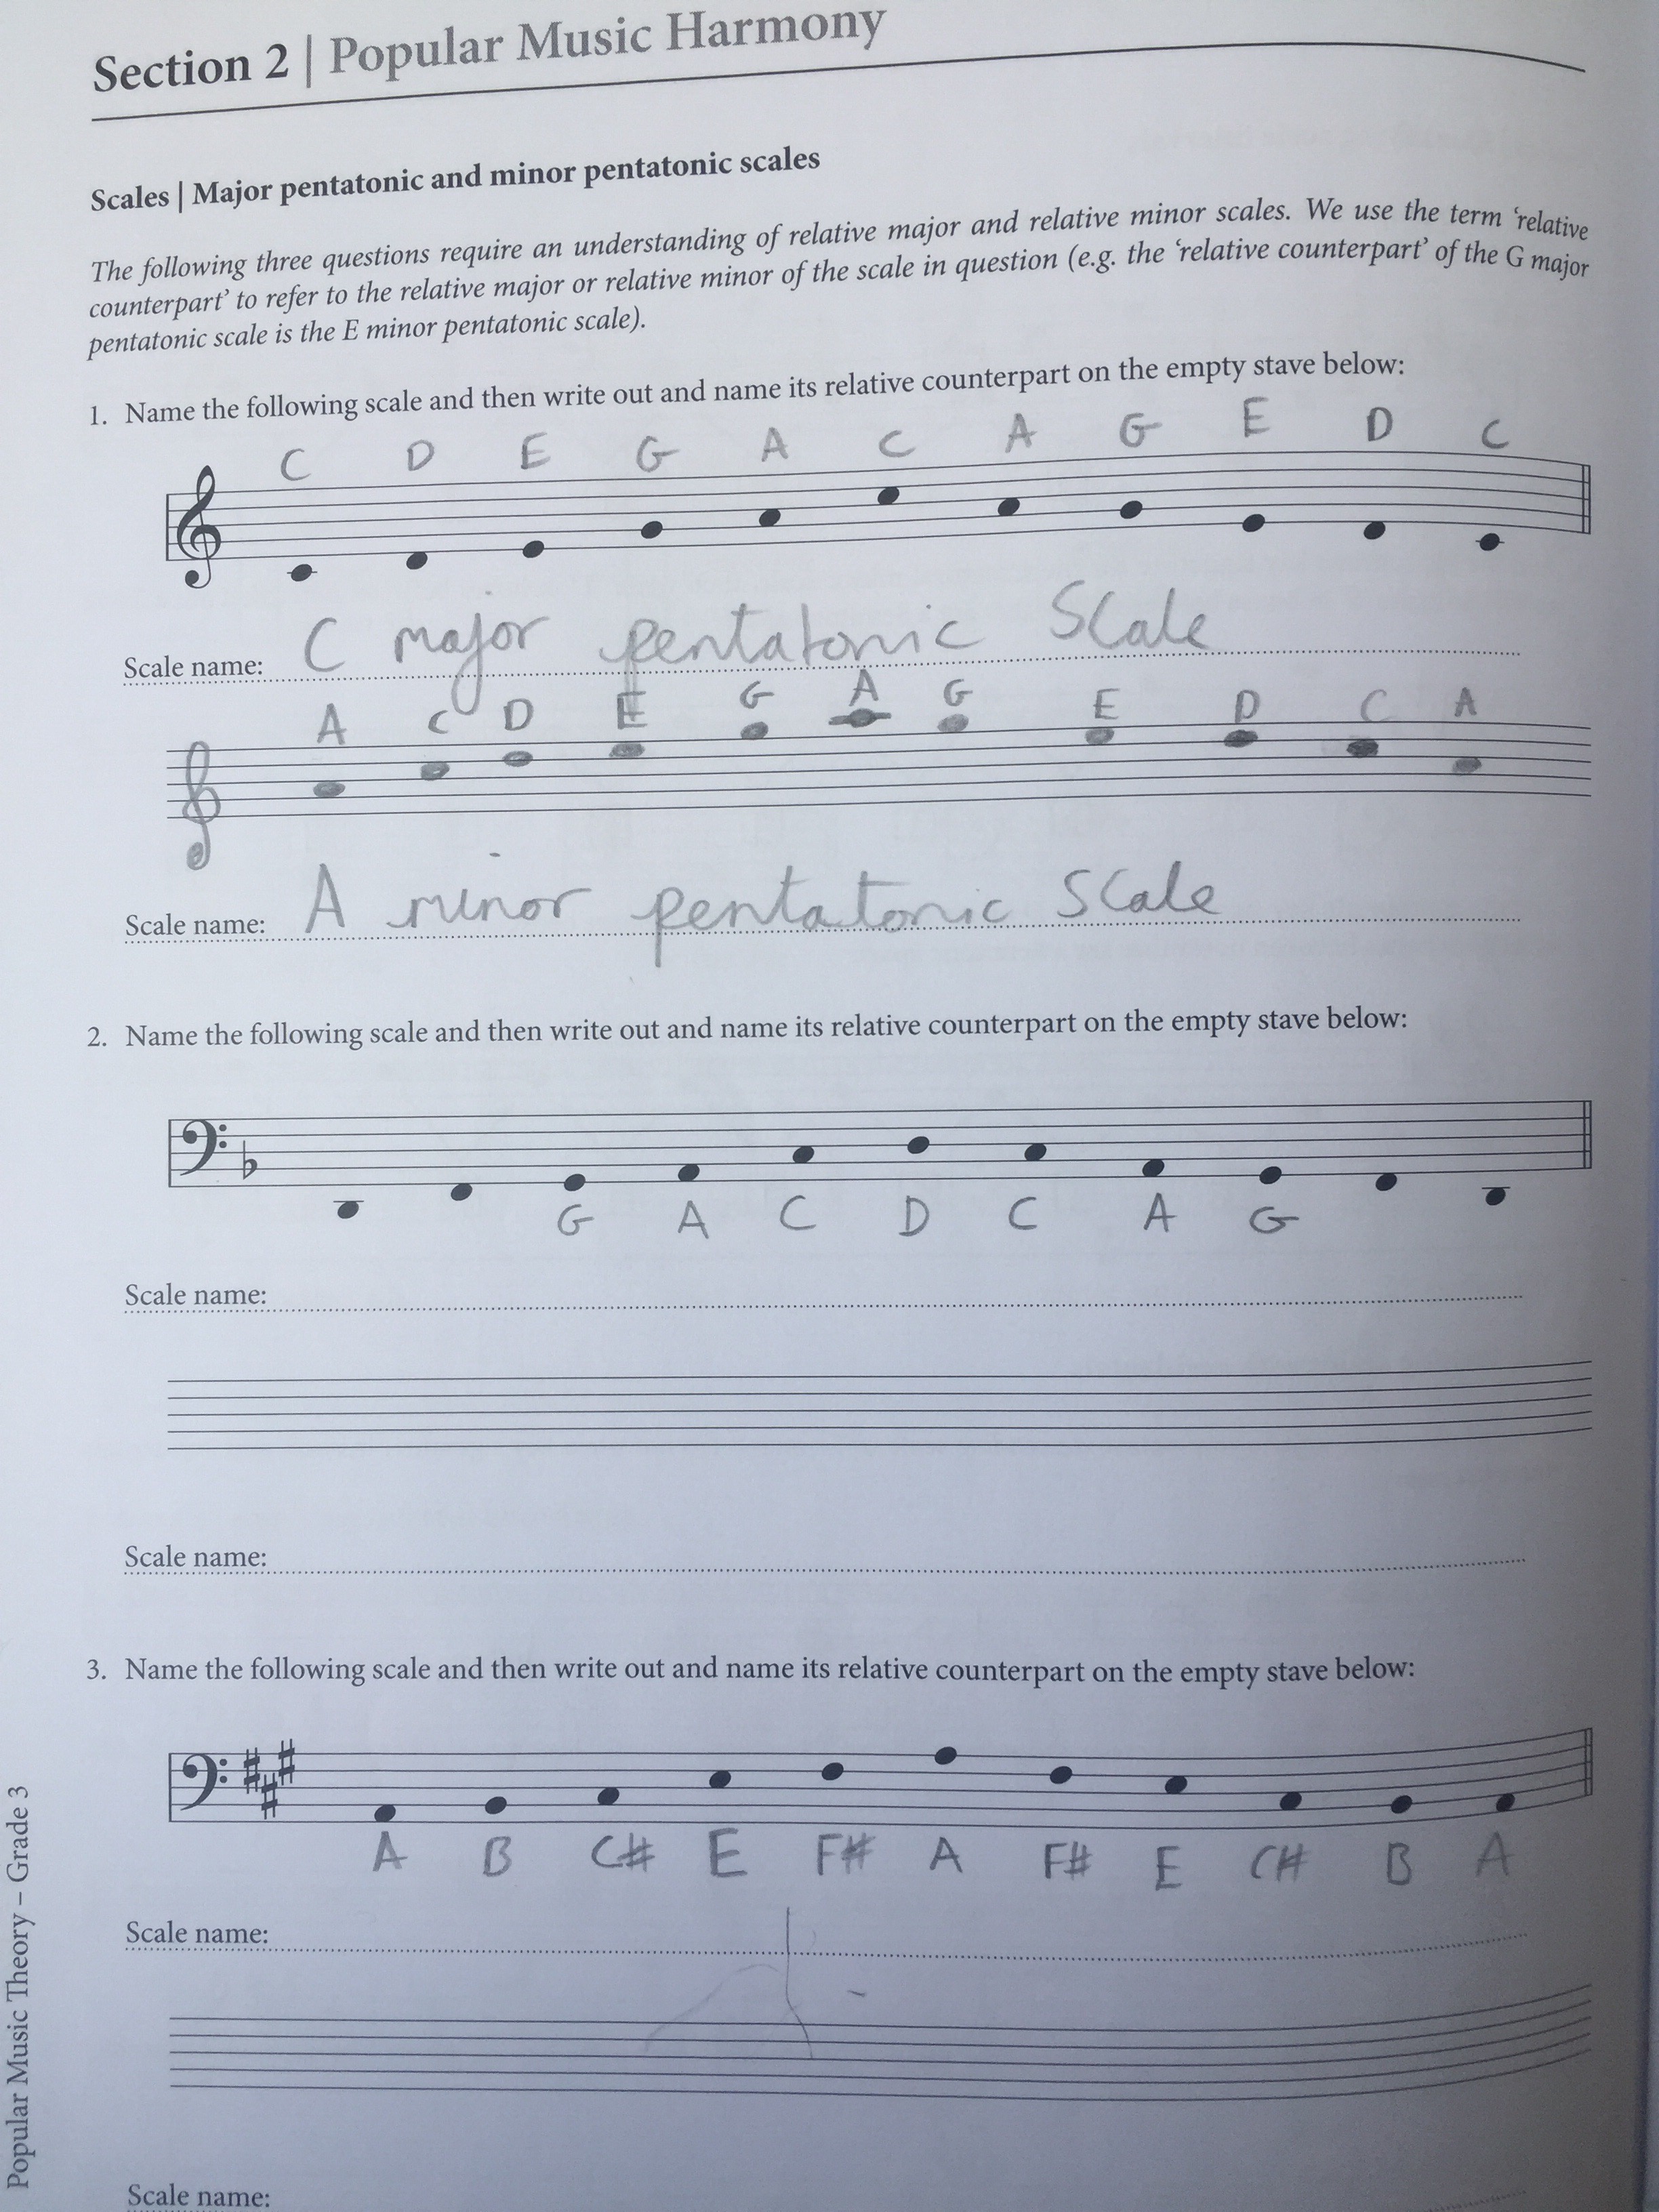 Section 2 | Popular Music Harmony
Scales | Major pentatonic and minor pentatonic scales
The following three questions require an understanding of relative major and relative minor scales. We use the term ‘relative
counterpart’ to refer to the relative major or relative minor of the scale in question (e.g. the ‘relative counterpart’ of the G major
pentatonic scale is the E minor pentatonic scale).
1. Name the following scale and then write out and name its relative counterpart on the empty stave below:
C D E G A C A G E D C
Scale name: C major pentatonic Scale
A C D E G A G E D C A
Scale name: A minor pentatonic Scale
2. Name the following scale and then write out and name its relative counterpart on the empty stave below:
G A C D C A G
Scale name:
Scale name:
3. Name the following scale and then write out and name its relative counterpart on the empty stave below:
A B C# E F# A F# E C# B A
Scale name:
Scale name:
Popular Music Theory – Grade 3